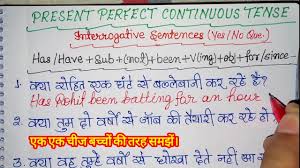 PRESENT PERFECT CONTINUOUS TENSE
Interrogative Sentences (Yes/No Que.)
Has/Have + Sub + (not) + been + V(ing) + obj + for/since
1. क्या रोहित एक घंटे से बल्लेबाजी कर रहे हैं?
Has Rohit been batting for an hour
2. क्या तुम दो वर्षों से जॉब की तैयारी कर रहे हो
एक एक चीज बच्चों की तरह समझें।
3. क्या वह तुम्हें वर्षों से धोखा देते नहीं आ